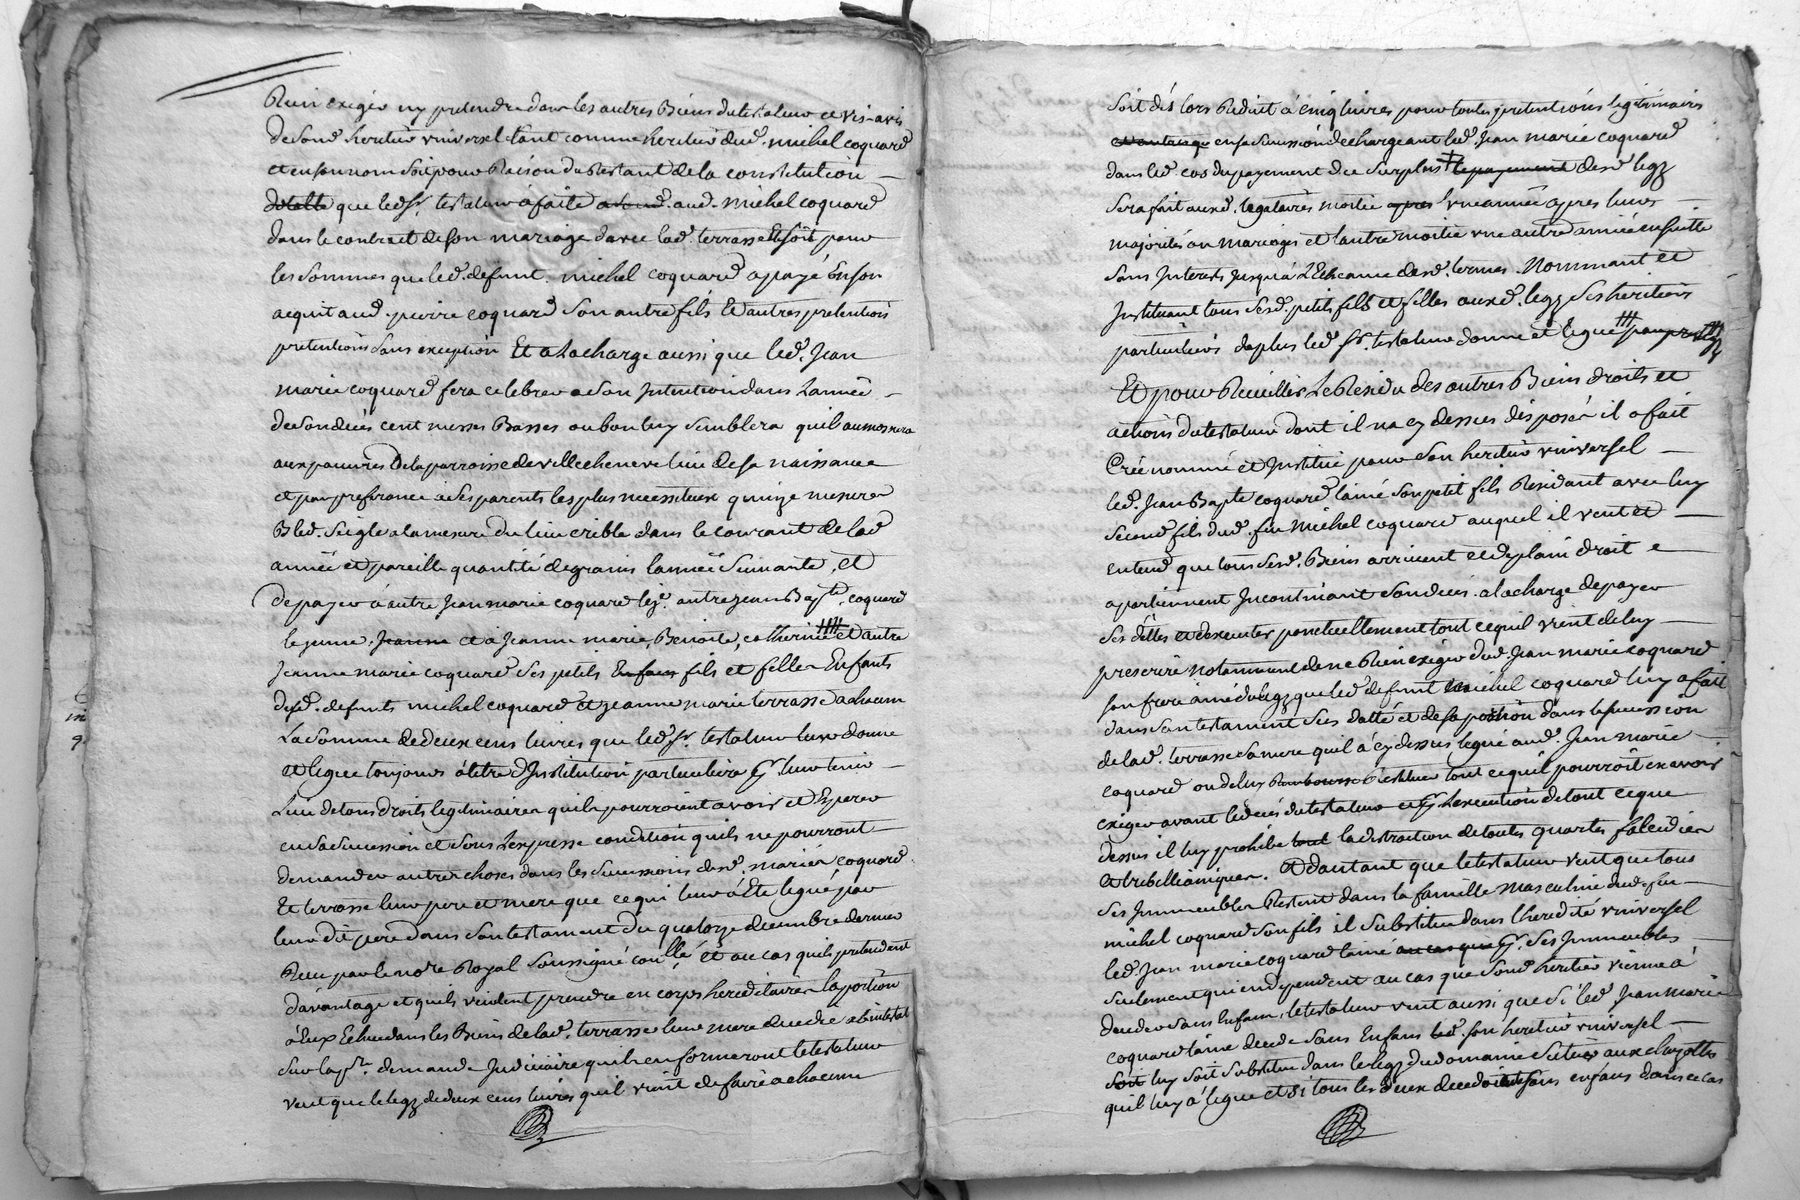 Rien exiger ny pretendre dans les autres Biens du testateur et vis-avis
de sond. heritier universel tant comme heritier dud. michel coquard
et en son nom soit pour Raison du Restant de la constitution
dotalle que led. sr. testateur a faite aud. michel coquard
dans le contract de son mariage d'avec lad. terrasse Et soit pour
les sommes que led. defunt michel coquard a payé En son
acquit aud. pierre coquard son autre fils Et autres pretentions
pretentions sans exception Et a la charge aussi que led. Jean
marie coquard fera celebrer a son Intention dans L'année
de son déces cent messes Basses ou bon luy semblera quil aumosnera
aux pauvres de la parroisse de villecheneve lieu de sa naissance
et par preferance a ses parents les plus necessiteux quinze mesures
Bled. seigle a la mesure du lieu crible dans le courant de lad
année et pareille quantité de grains lannée suivante, et
de payer à autre Jean marie coquard autre Jean Bapte. coquard
le jeune, Jeanne et à Jeanne marie, Benoite, catherine et autre
Jeanne marie coquard ses petits Enfans fils et filles Enfants
desd. defunts michel coquard et jeanne marie terrasse a chacun
La somme de deux cens livres que led. sr. testateur leur donne
et legue toujours à titre d'Institution particuliere pr. leur tenir
Lieu de tous droits legitimaires quils pourroient avoir et Esperer
en sa succession et sous l'expresse condition quils ne pourront
demander autres choses dans les successions desd. mariés coquard
Et terrasse leur pere et mere que ce qui leur à Eté legué par
leur dit pere dans son testament du quatorze decembre dernier
Recu par le nore Royal soussigné conllé. et au cas quils pretendent
davantage et quils veulent prendre en corps hereditaires la portion
à Eux Echue dans les Biens de lad. terrasse leur mere decedée abintestat
sur la pre. demande Judiciaire quils en formeront le testateur
veut que le legz de deux cens livres quil vient de faire a chacun
soit dès lors Reduit à cinq livres pour toutes pretentions legitimaires
en sa succession dechargeant led. Jean marie coquard
dans led. cas du payement de ce surplus le payement desd. legz
sera fait auxd. legataires moitié apres une année apres leurs
majorités ou mariages et l'autre moitié une autre année ensuitte
sans Interests jusqu'à L'Echeance desd. termes. Nommant et
Instituant tous sesd. petits fils et filles auxd. legz ses heritiers
particuliers de plus led. sr. testateur donne et legue par
Et pour Receuillir Le Residu des autres Biens droits et
actions du testateur dont il n'a cy dessus disposé il a fait
Créé nommé et Institué pour son heritier universel
led. Jean Bapte coquard l'ainé son petit fils Residant avec luy
second fils dud. feu michel coquard auquel il veut et
entend que tous sesd. Biens arrivent et de plain droit
apartiennent Incontinant son déces. a la charge de payer
ses dettes et dexecuter ponctuellement tout cequil vient de luy
prescrire notamment de ne Rien exiger dud. Jean marie coquard
son frere ainé du legz que led. defunt michel coquard luy a fait
dans son testament sus datté et de sa portion dans la succession
de lad. terrasse sa mere quil à cy dessus legué aud. Jean marie
coquard ou de luy Rembourser Restituer tout ce quil pourroit en avoir
exiger avant le déces du testateur et pr. l'execution de tout ce que
dessus il luy prohibe tout la distraction de toutes quartes falcidies
et trebellianiques. Et d'autant que le testateur veut que tous
ses Immeubles Restent dans la famille masculine dud. feu
michel coquard son fils il substitue dans l'heredité universel
led. Jean marie coquard l'ainé au cas que pr. ses Immeubles
seulement qui en dependent au cas que sond. heritier vienne à
deceder sans Enfans, le testateur veut aussi que si led. Jean Marie
coquard l'ainé decede sans Enfans led. son heritier universel
soit luy soit substitué dans le legz du domaine situé aux
quil luy à legué et si tous les deux decedoient sans enfans dans ce cas